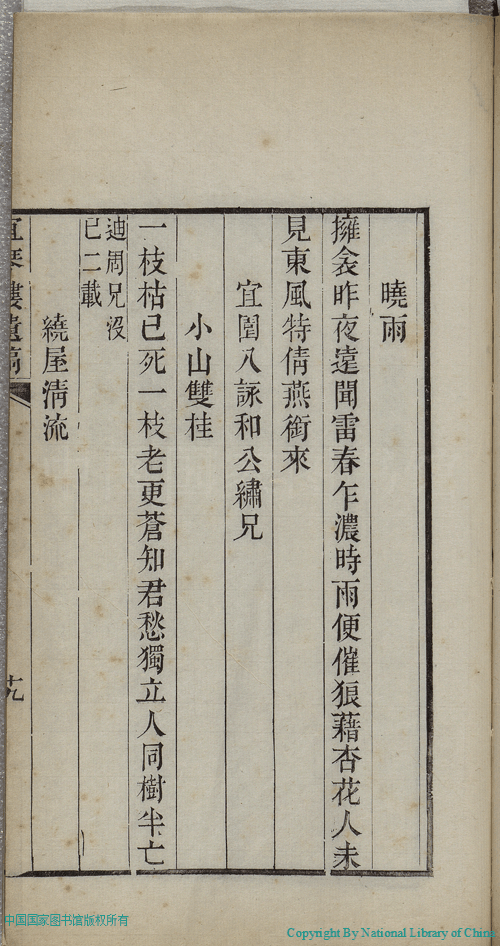 曉雨
擁衾昨夜遠聞雷春乍濃時雨便催狼藉杏花人未
見東風特倩燕銜來
宜園八詠和公繡兄
小山雙桂
一枝枯已死一枝老更蒼知君愁獨立人同樹半亡
迪周兄沒
已二載
繞屋清流
宜琴樓遺稿
十九
中国国家图书馆版权所有
Copyright By National Library of China